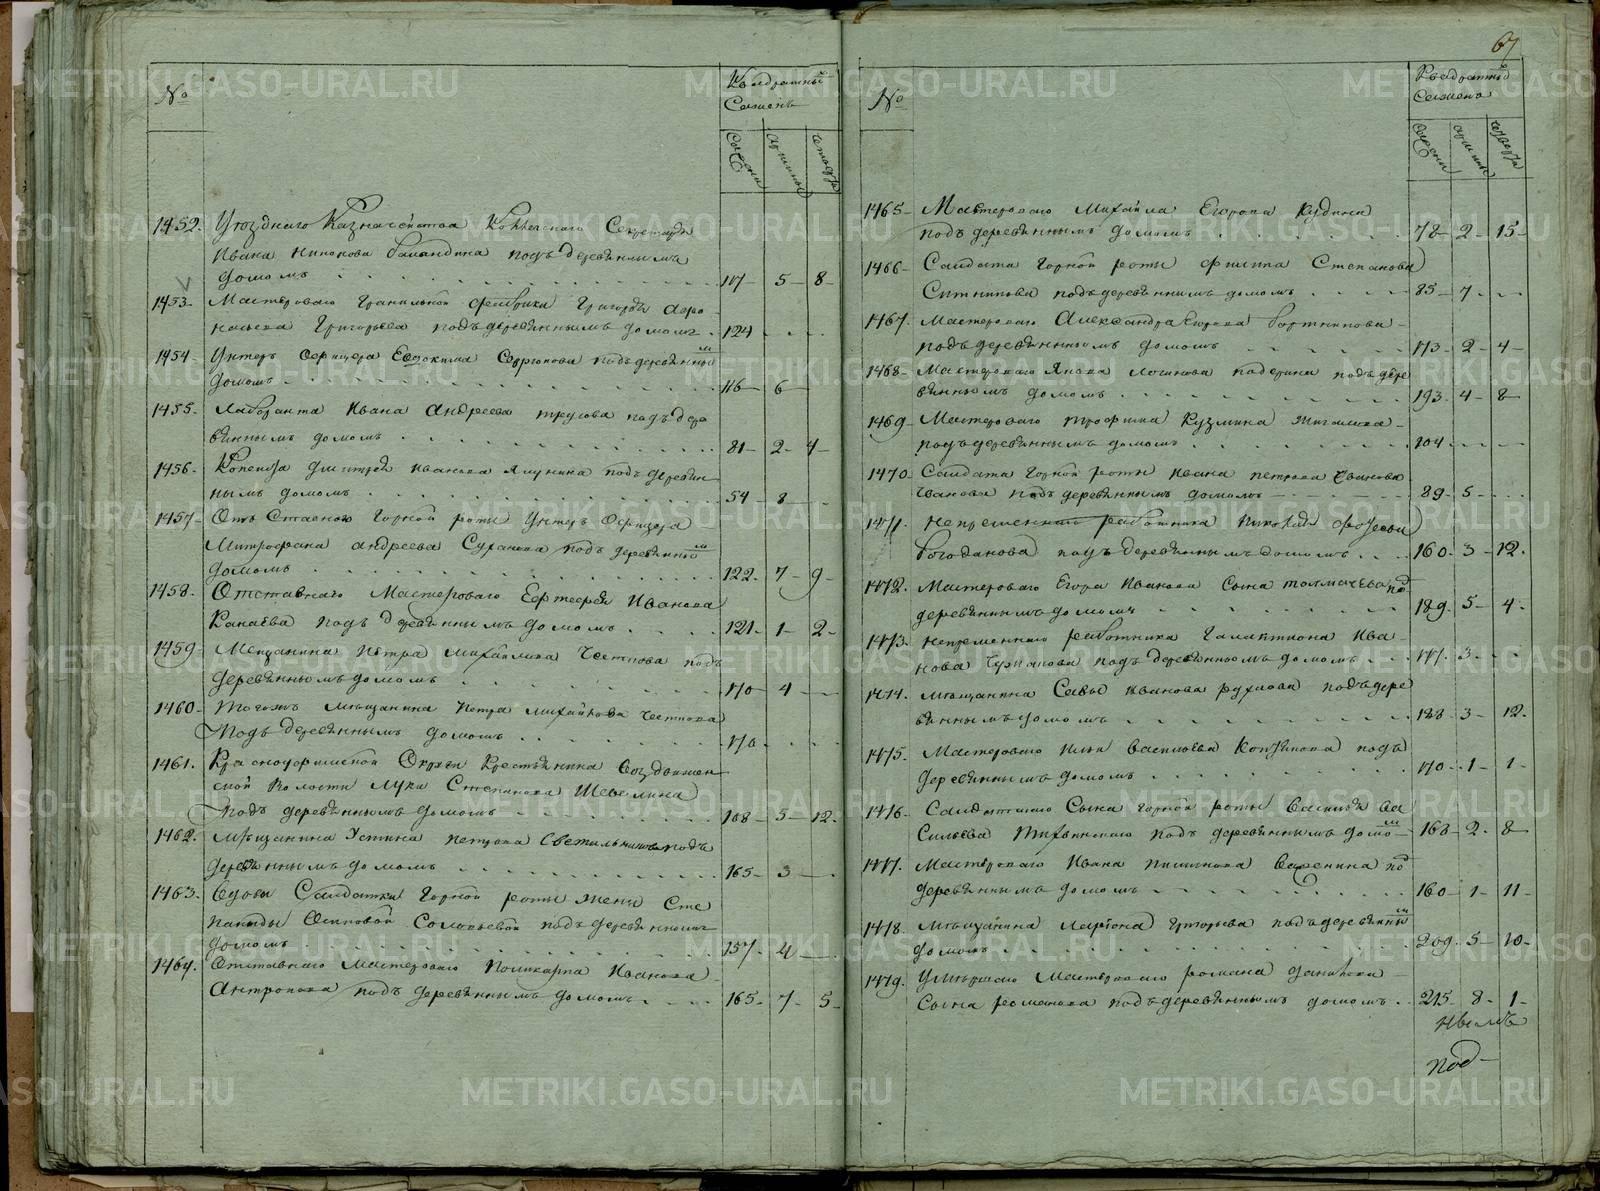 №
Квадратныя
Сажени
Сажени
Аршины
четверти
1452. Уезднаго Казначейства Коллежскаго Секретаря
Ивана под деревяннымъ
домомъ 117 5 8
1453. Мастероваго Гранильной фабрики Григорья Афо-
насьева Григорьева подъ деревяннымъ домомъ 124
1454. Унтеръ Офицера Евдокима подъ деревяннымъ
домомъ 116 6
1455. Лаборанта Ивана Андреева Трусова подъ дере
вяннымъ домомъ 81 2 4
1456. Дмитрея Иванова подъ деревян
нымъ домомъ 54 8
1457. Отъ Статной Горной роты Унтеръ Офицера
Митрофана Андреева Суханова подъ деревяннымъ
домомъ 122 7 9
1458. Отставнаго Мастероваго Иванова
Канаева подъ деревяннымъ домомъ 121 1 2
1459. Мещанина Петра Михайлова Честнова подъ
деревяннымъ домомъ 170 4
1460. Тогожъ мещанина Петра Михайлова Честнова
Подъ деревяннымъ домомъ 170
1461. Красноуфимской Округи Крестьянина Воздвижен
ской Волости Луки Степанова Шевелина
Подъ деревяннымъ домомъ 108 5 12
1462. Мещанина Устина Петрова Светильникова подъ
деревяннымъ домомъ 165 3
1463. Вдовы Солдатки Горной роты жены Сте
паниды Осиповой Соловьевой подъ деревяннымъ
домомъ 157 4
1464. Отставнаго Мастероваго Поликарпа Иванова
Антропова подъ деревяннымъ домомъ 165 7 5
67
№
Квадратныя
Сажени
Сажени
Аршины
четверти
1465. Мастероваго Михайла Егорова Кудина
подъ деревяннымъ домомъ 78 2 15
1466. Солдата Горной роты Филипа Степанова
Ситникова подъ деревяннымъ домомъ 85 7
1467. Мастероваго Александра Егорова Бортникова
подъ деревяннымъ домомъ 113 2 4
1468. Мастероваго Якова Логинова подъ дере
вяннымъ домомъ 193 4 8
1469. Мастероваго Трофима Кузмина
подъ деревяннымъ домомъ 104
1470. Солдата Горной роты Ивана Петрова
Иванова подъ деревяннымъ домомъ 89 5
1471. Непременнаго работника Николая Фадеева
Богоданова подъ деревяннымъ домомъ 160 3 12
1472. Мастероваго Егора Иванова Сына Толмачева подъ
деревяннымъ домомъ 189 5 4
1473. Непременнаго работника Галактиона Ива-
нова подъ деревяннымъ домомъ 171 3
1474. Мещанина Савы Иванова подъ дере
вяннымъ домомъ 188 3 12
1475. Мастероваго Ильи Васильева подъ
деревяннымъ домомъ 170 1 1
1476. Солдатскаго Сына Горной роты Василья Ва
сильева Тихвинскаго подъ деревяннымъ домомъ 168 2 8
1477. Мастероваго Ивана подъ
деревяннымъ домомъ 160 1 11
1478. Мещанина Лариона Григорьева подъ деревяннымъ
домомъ 209 5 10
1479. Умершаго Мастероваго Романа Данилова
Сына Романова подъ деревяннымъ домомъ 215 8 1
Под